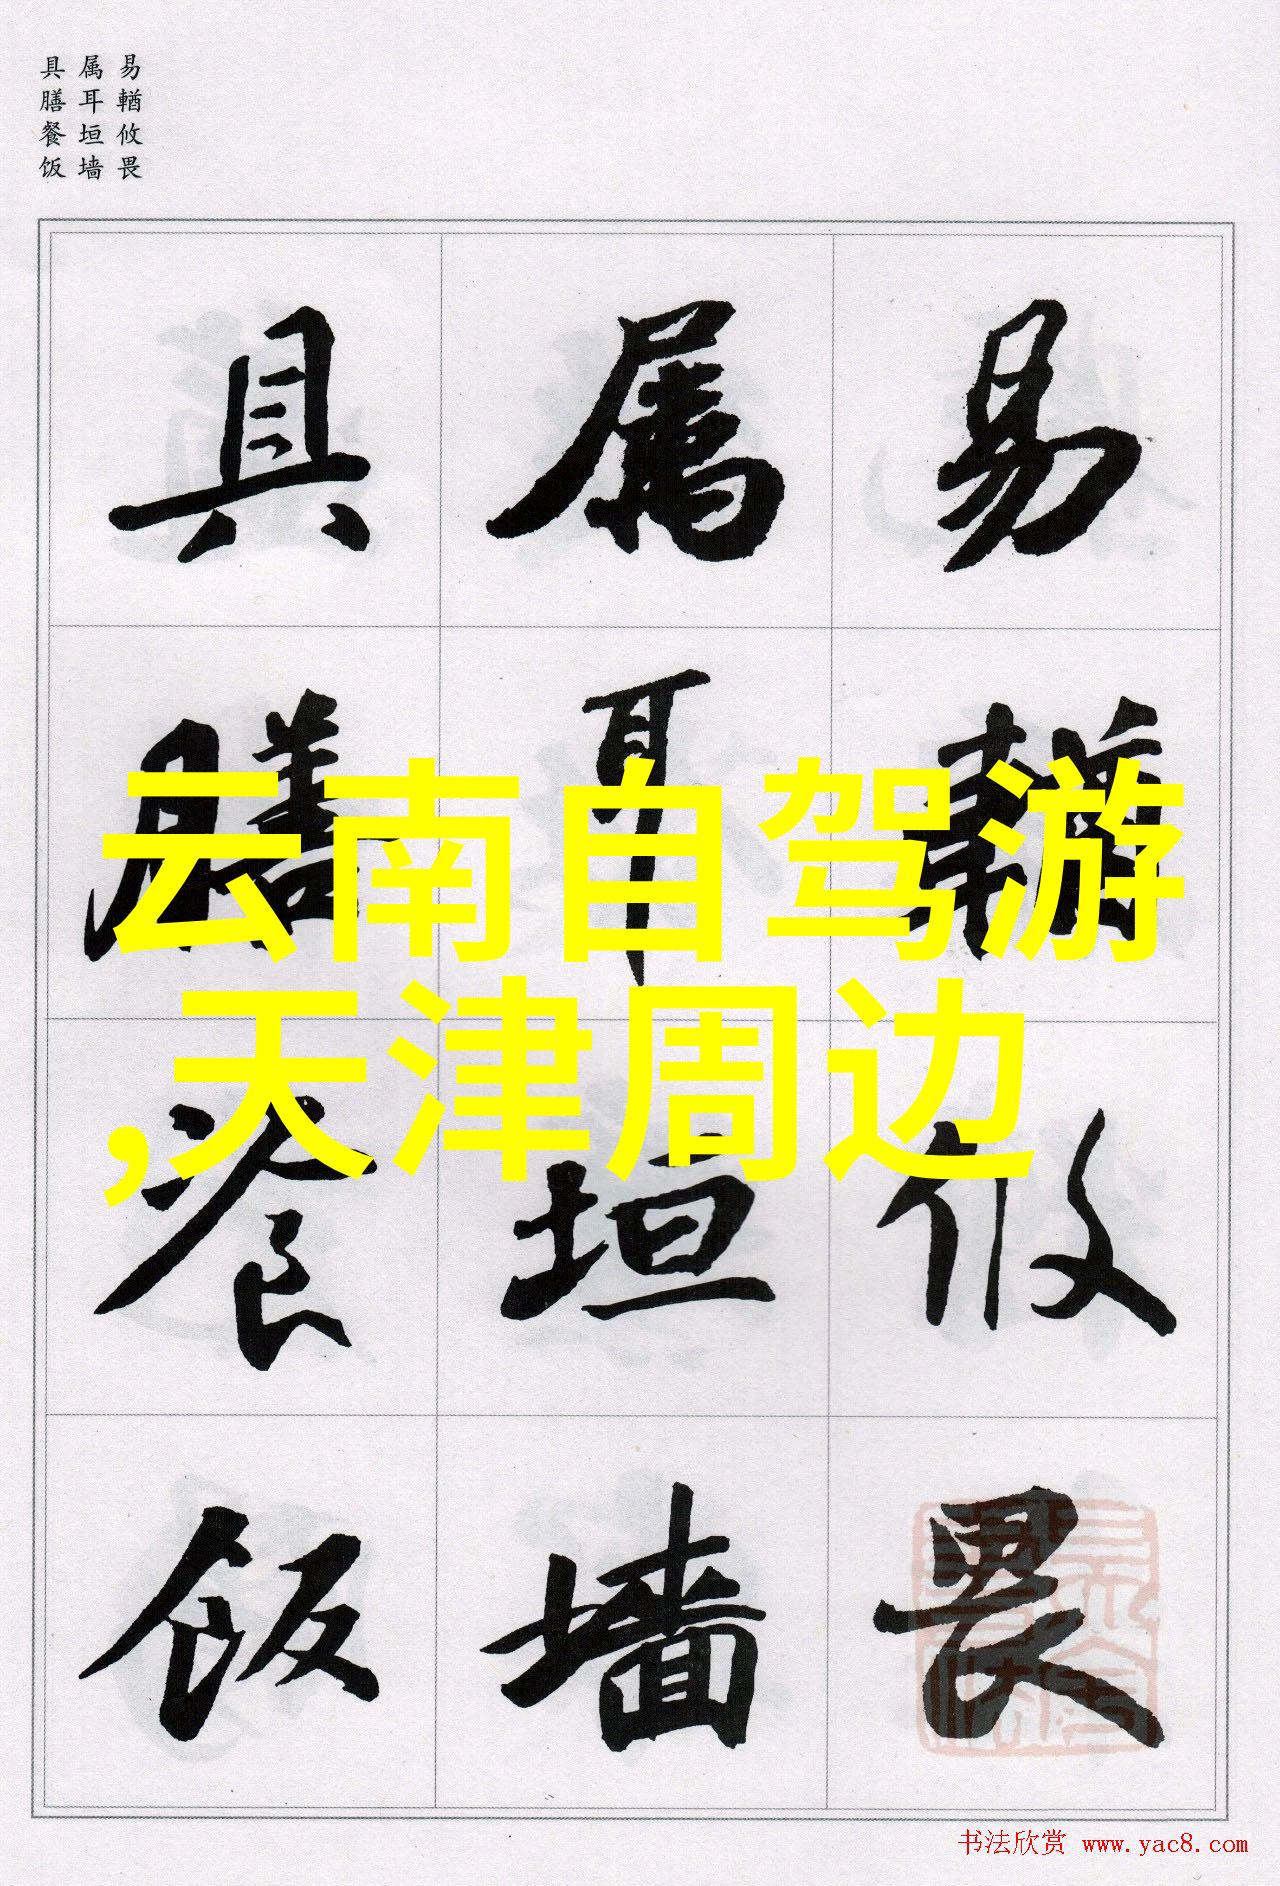 易輶攸畏
属耳垣墙
具膳餐饭
易属具
輶耳膳
攸垣餐
畏墙饭
云南自驾游
,天津周边
书法欣赏 www.yac8.com